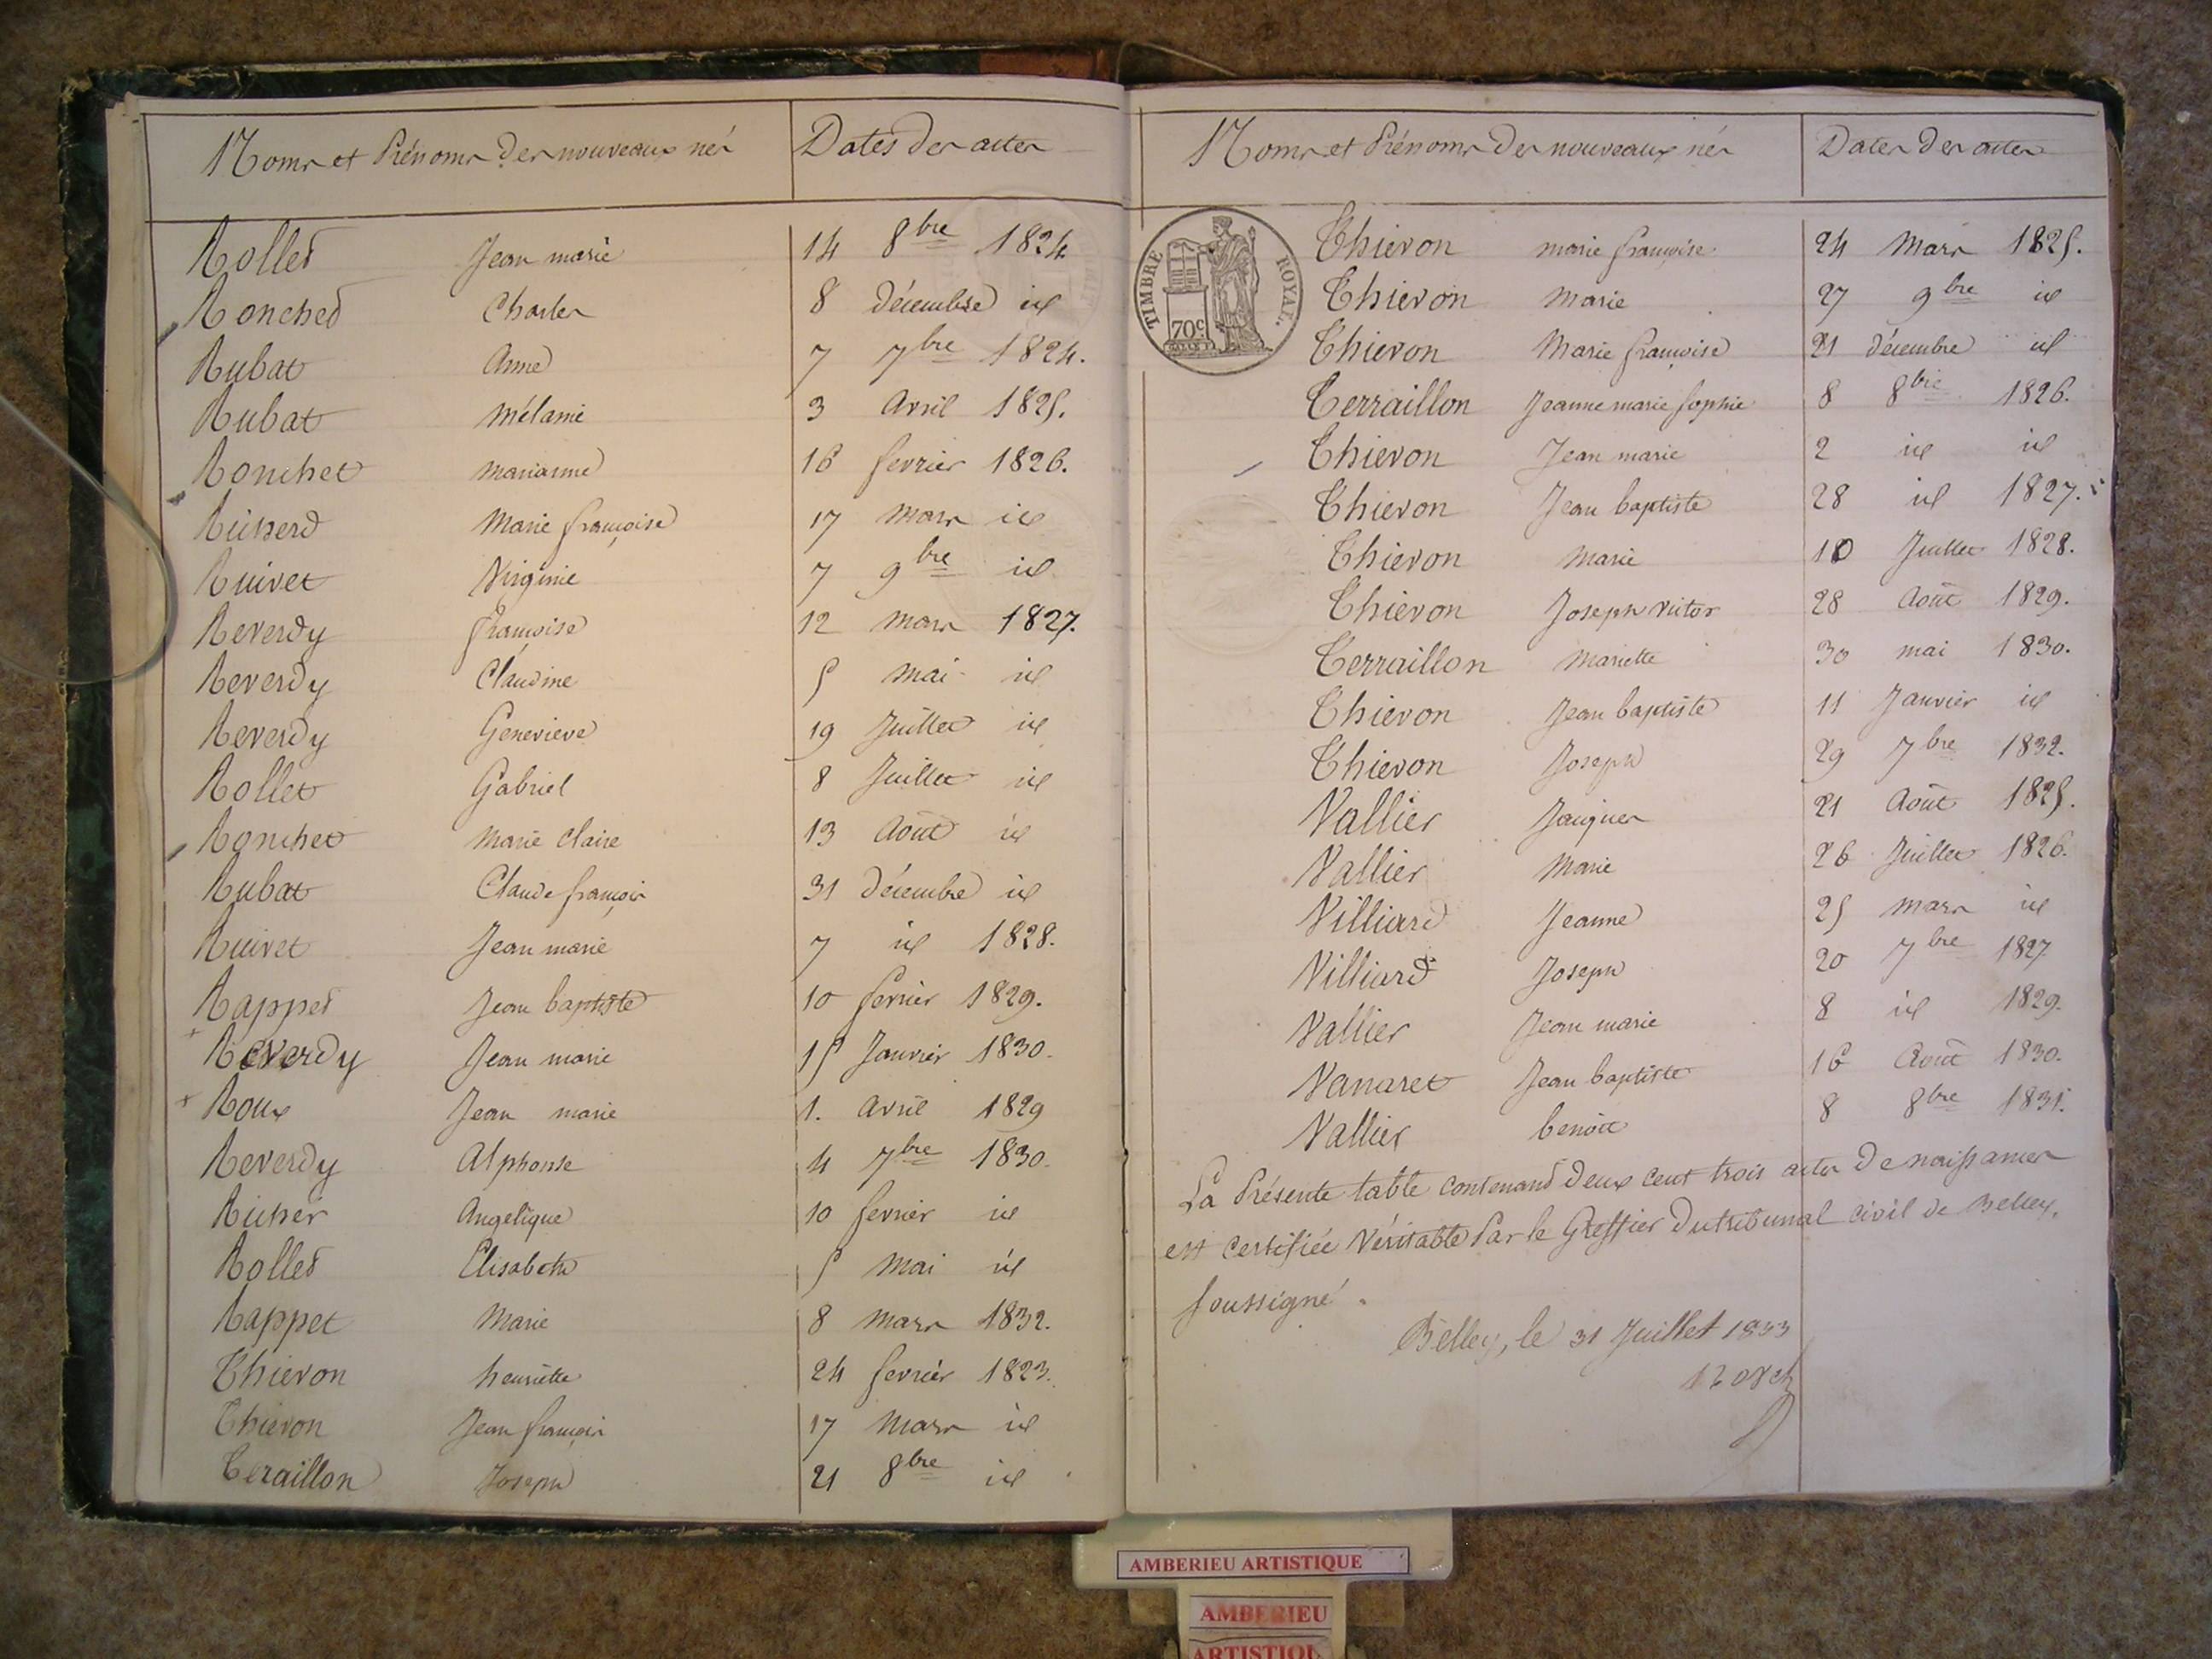 Noms et Prénoms des nouveaux nés Dates des actes
Rollet Jean marie 14 8bre 1824
Ronchet Charles 8 décembre id
Rubat Anne 7 7bre 1824.
Rubat Mélanie 3 Avril 1825.
Ronchet Marianne 16 fevrier 1826.
Marie françoise 17 Mars id
Ruivet Virginie 7 9bre id
Reverdy françoise 12 Mars 1827.
Reverdy Claudine 5 Mai id
Reverdy Genevieve 19 Juillet id
Rollet Gabriel 8 Juillet id
Ronchet Marie Claire 13 Août id
Rubat Claude françois 31 Décembre id
Ruivet Jean marie 7 id 1828.
Rappet Jean baptiste 10 fevrier 1829.
Reverdy Jean marie 15 Janvier 1830.
Roux Jean marie 1. Avril 1829
Reverdy Alphonse 4 7bre 1830.
Angelique 10 fevrier id
Rollet Elisabeth 5 Mai id
Rappet Marie 8 Mars 1832.
Thievon henriette 24 fevrier 1823.
Thievon Jean françois 17 Mars id
Teraillon Joseph 21 8bre id
Noms et Prénoms des nouveaux nés Dates des actes
TIMBRE ROYAL.
70c
Thievon marie françoise 24 Mars 1825.
Thievon Marie 27 9bre id
Thievon Marie françoise 21 décembre id
Terraillon Jeanne marie Sophie 8 8bre 1826.
Thievon Jean marie 2 id id
Thievon Jean baptiste 28 id 1827.
Thievon Marie 10 Juillet 1828.
Thievon Joseph Victor 28 Août 1829.
Terraillon Mariette 30 mai 1830.
Thievon Jean baptiste 11 Janvier id
Thievon Joseph 29 7bre 1832.
Vallier Jacques 21 Août 1825.
Vallier Marie 26 Juillet 1826.
Villiard Jeanne 25 Mars id
Villiard Joseph 20 7bre 1827
Vallier Jean marie 8 id 1829.
Vanaret Jean baptiste 16 Août 1830.
Vallier benoit 8 8bre 1831.
La Présente table contenant deux cent trois actes de naissances
est certifiée Véritable Par le Greffier du tribunal civil de Belley.
soussigné.
Belley, le 31 Juillet 1833
AMBERIEU ARTISTIQUE
AMBERIEU
ARTISTIQU